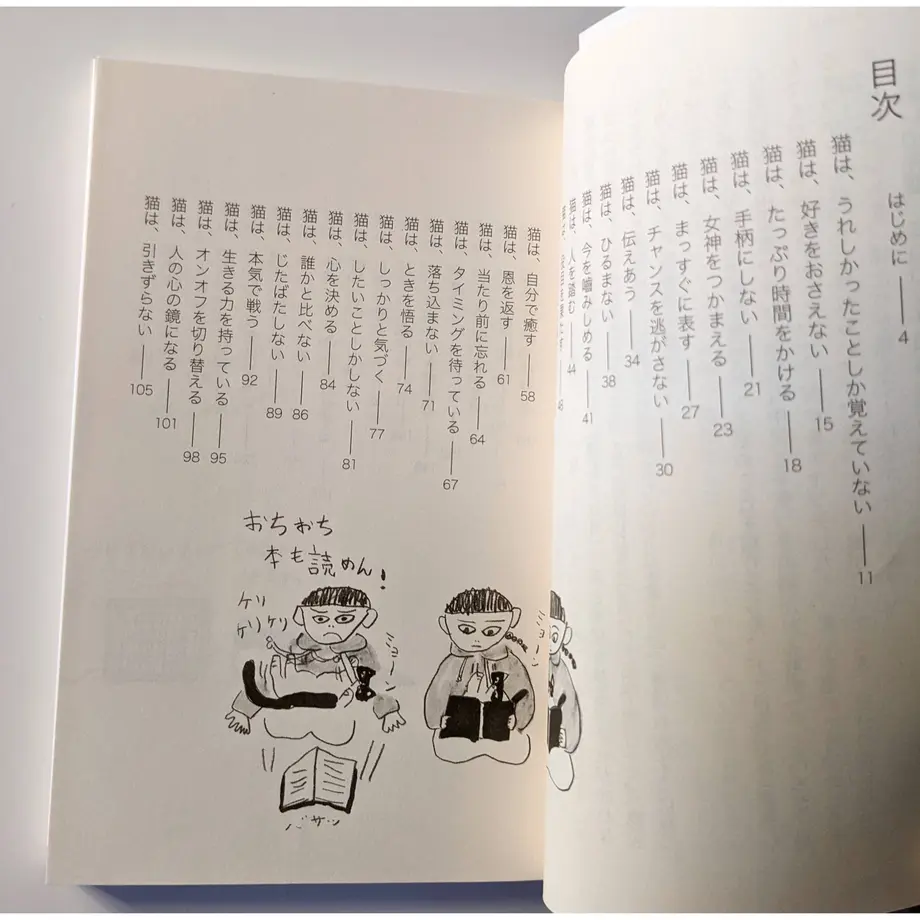 目次
はじめに 4
猫は、うれしかったことしか覚えていない 11
猫は、好きをおさえない 15
猫は、たっぷり時間をかける 18
猫は、手柄にしない 21
猫は、女神をつかまえる 23
猫は、まっすぐに表す 27
猫は、チャンスを逃がさない 30
猫は、伝えあう 34
猫は、ひるまない 38
猫は、今を嚙みしめる 41
猫は、人を踏む 44
猫は、自分で癒す 58
猫は、恩を返す 61
猫は、当たり前に忘れる 64
猫は、タイミングを待っている 67
猫は、落ち込まない 71
猫は、ときを悟る 74
猫は、しっかりと気づく 77
猫は、したいことしかしない 81
猫は、心を決める 84
猫は、誰かと比べない 86
猫は、じたばたしない 89
猫は、本気で戦う 92
猫は、生きる力を持っている 95
猫は、オンオフを切り替える 98
猫は、人の心の鏡になる 101
猫は、引きずらない 105
ミョーン
おちおち
本も読めん!
ミョーン
ケリ
ケリケリ
バサッ